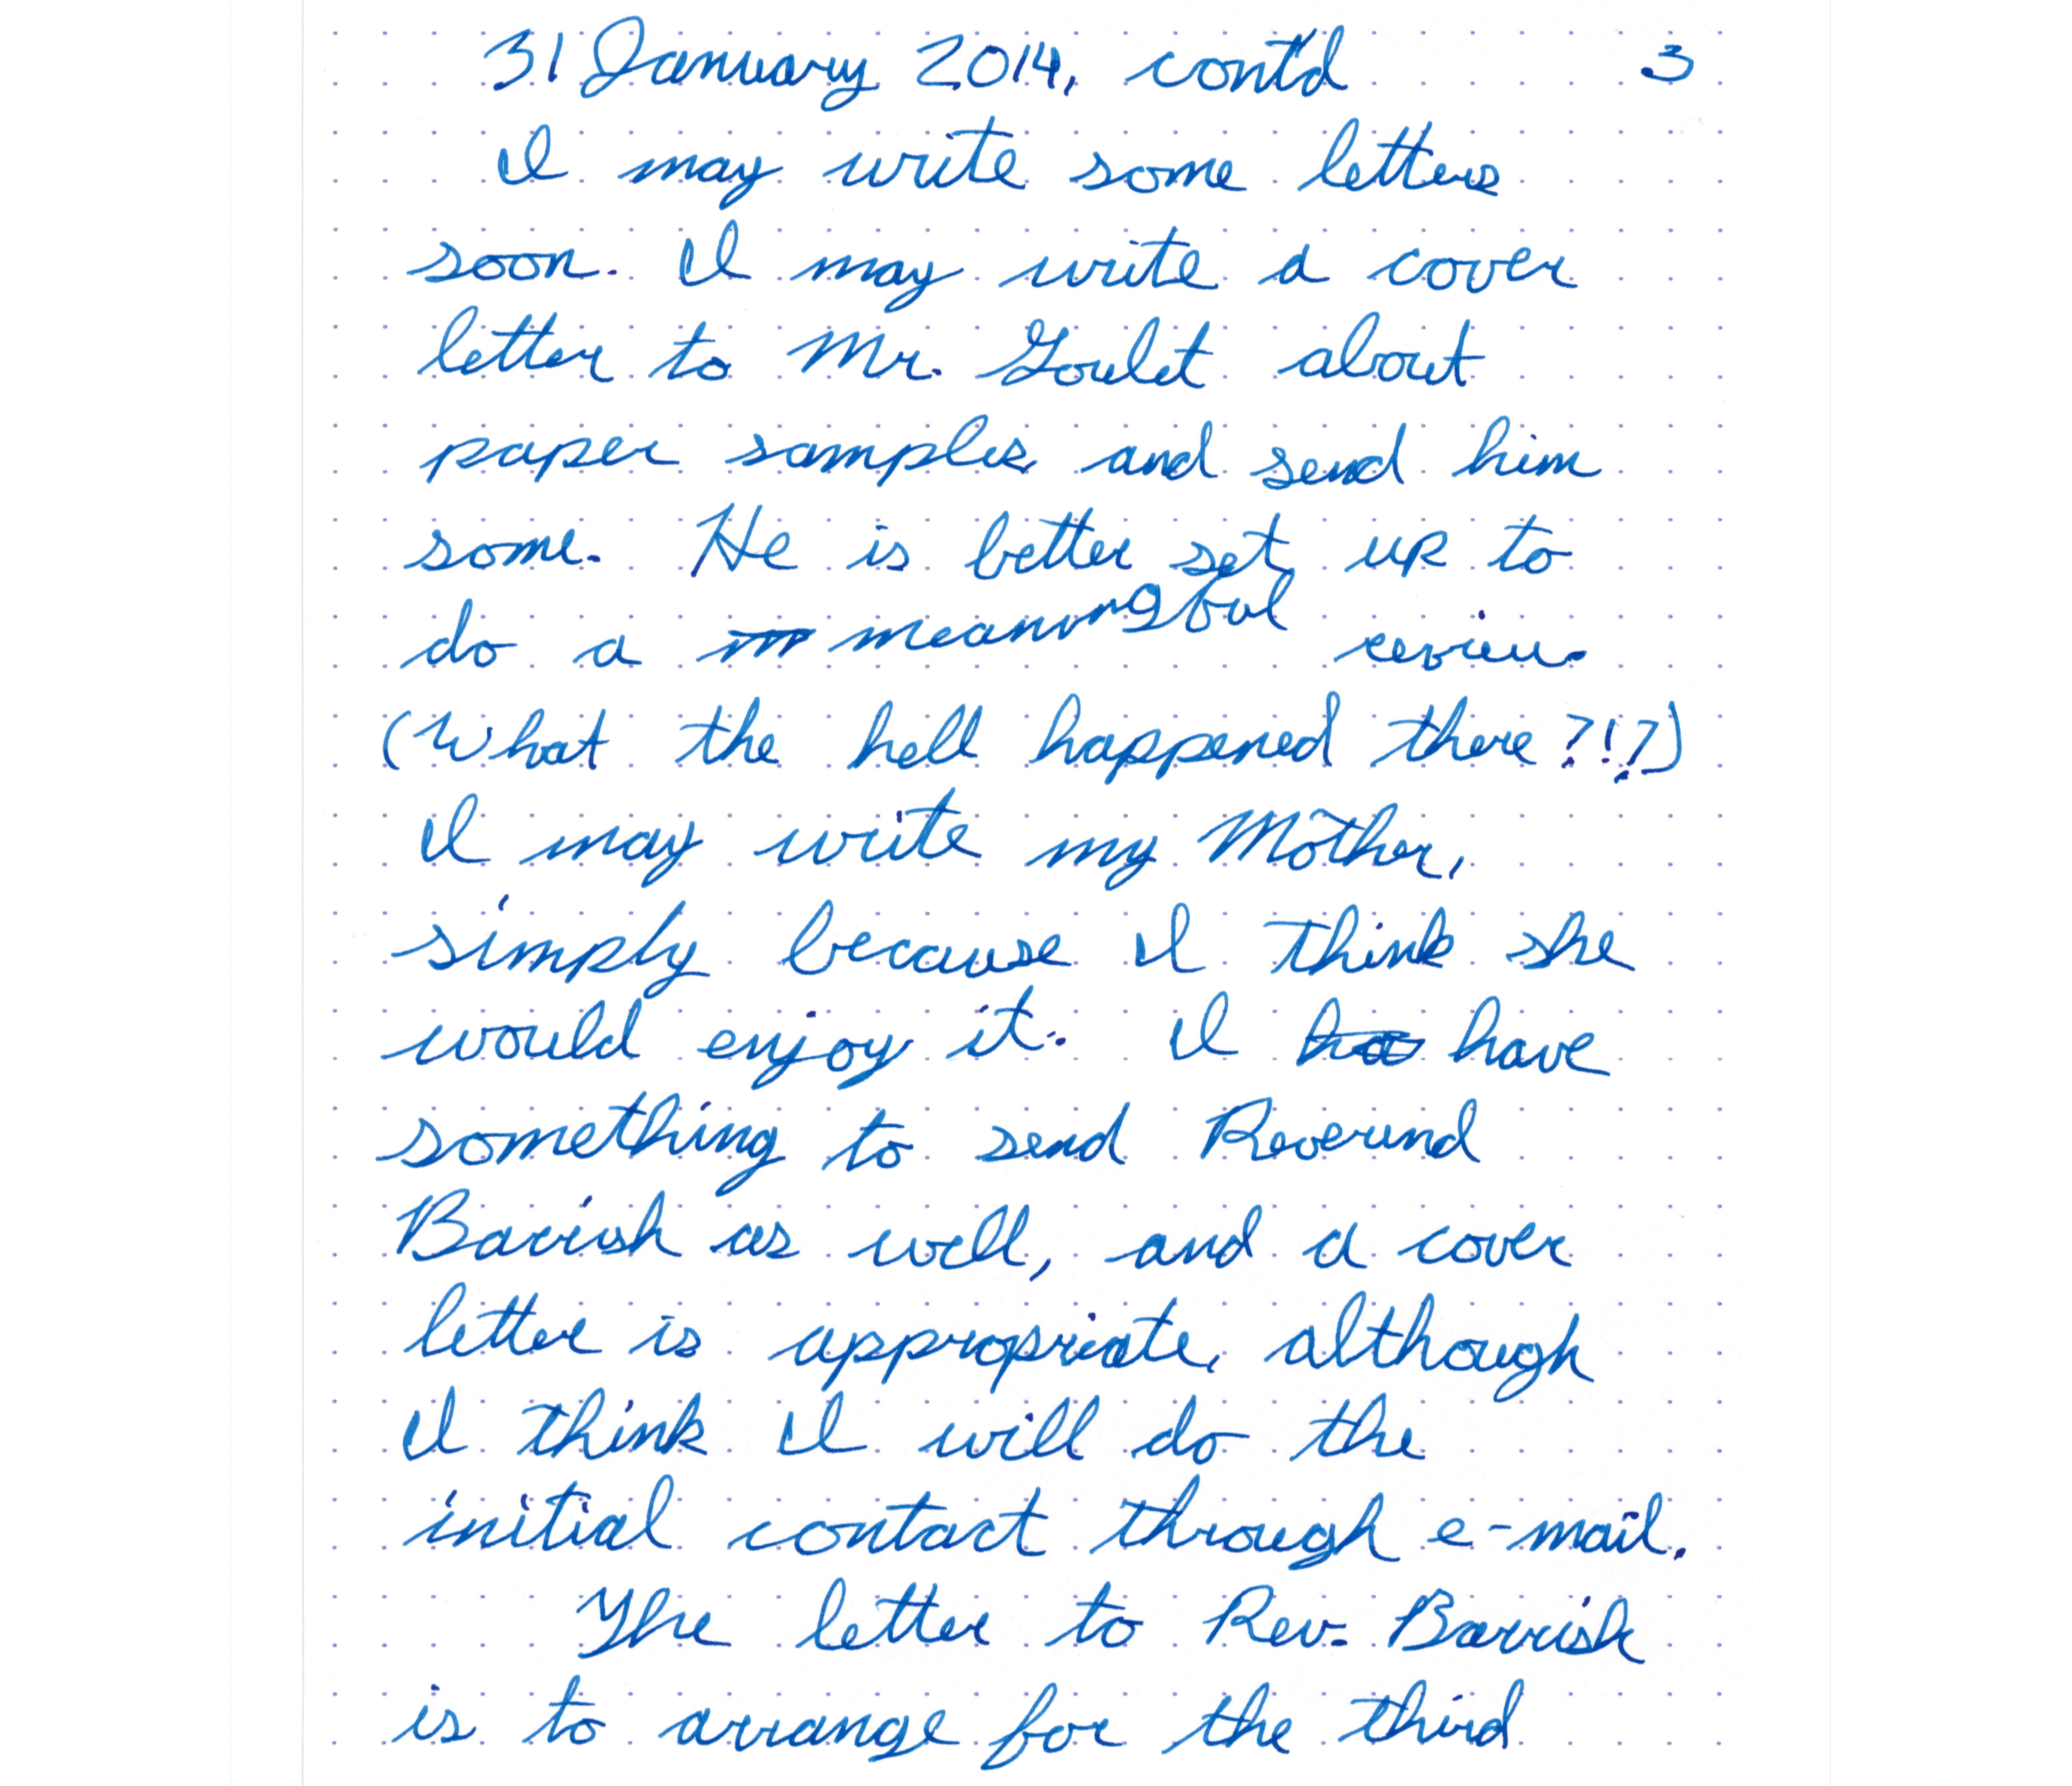 31 January 2014, cont'd 3
I may write some letters
soon. I may write a cover
letter to Mr. Goulet about
paper samples and send him
some. He is better set up to
do a m meaningful review.
(What the hell happened there?!?)
I may write my Mother,
simply because I think she
would enjoy it. I ha have
something to send Reverend
Barrish as well, and a cover
letter is appropriate, although
I think I will do the
initial contact through e-mail.
The letter to Rev. Barrish
is to arrange for the third